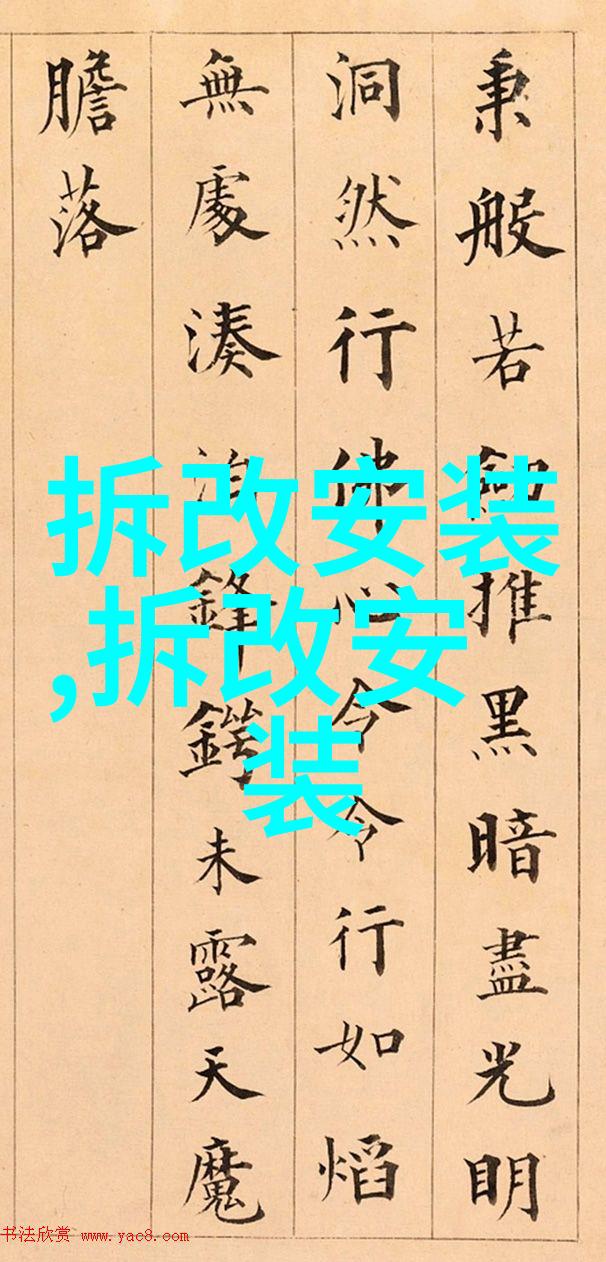 秉般若推黑暗盡光明
洞然行佛心令令行如熖
無處湊泊鋒鍔未露天魔
膽落
拆改安装
,拆改安
装
书法欣赏 www.yac8.com